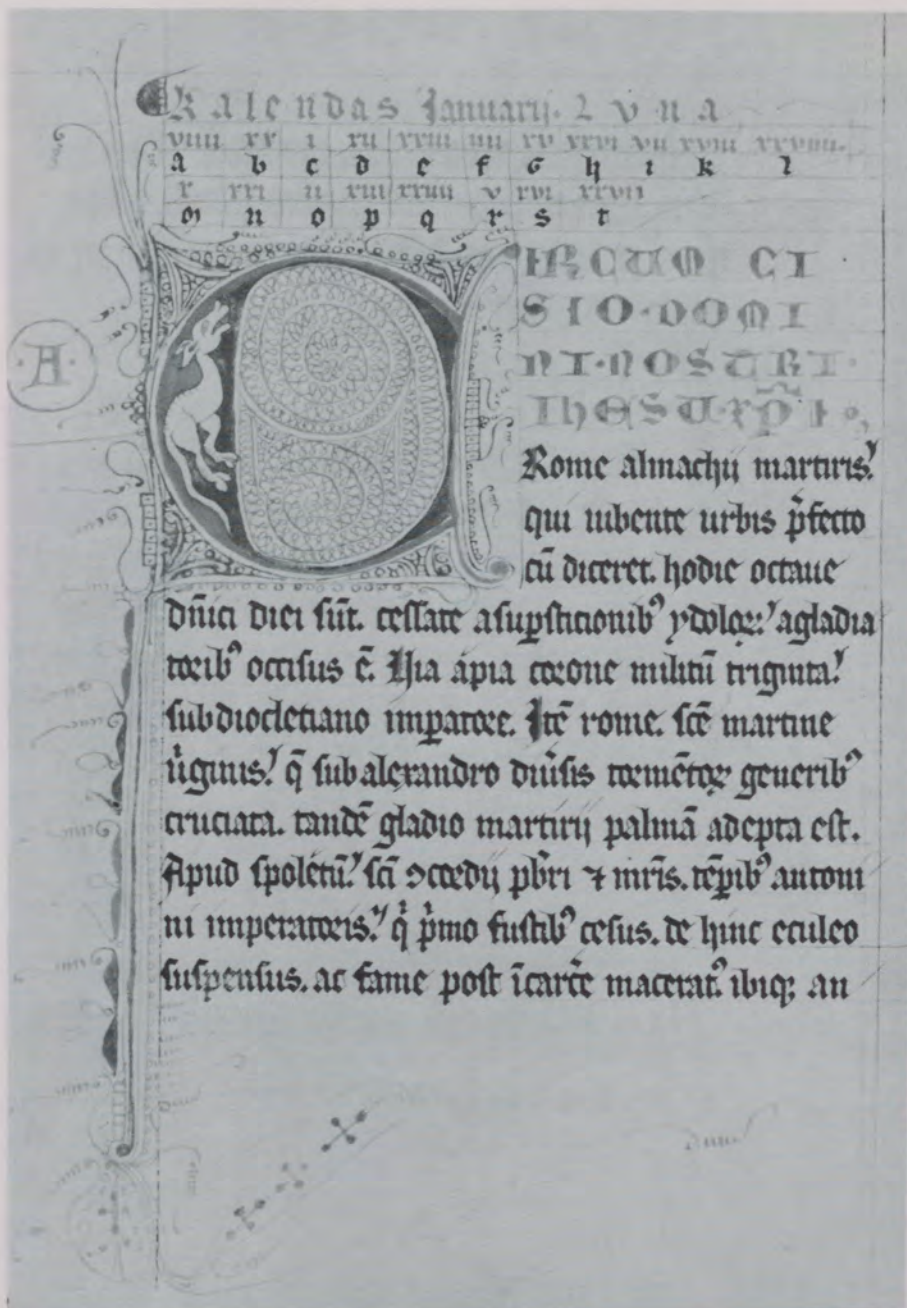 Kalendas Januarij. Luna
viiii xx i xii xxiii iiii xv xxvi vii xviii xxviiii.
a b c d e f G h i k l
x xxi ii xiii xxiiii v xvi xxvii
m n o p q r s t
·A·
CIRCUM CI
SIO·DOMI
NI·NOSTRI·
IHESU·XP̃I·
Rome almachij martiris.
qui iubente urbis p̄fecto
cū diceret. hodie octaue
dn̄ici diei sūt. cessate asuꝑsticionibꝰ ydoloꝝ. agladia
toribꝰ occisus ē. Uia apia corone militū triginta.
subdiocletiano imꝑatore. Itē rome. scē martine
uͥginis. q̄ sub alexandro diūsis tormētoꝝ generibꝰ
cruciata. tandē gladio martirij palmā adepta est.
Apud spoletū. sc̄i ꝯcordij pb̄ri ⁊ mr̄is. tēꝑibꝰ antoni
ni imperatoris. qͥ pͥmo fustibꝰ cesus. de hinc eculeo
suspensus. ac fame post īcarc̄e maceratꝰ. ibiqꝫ an